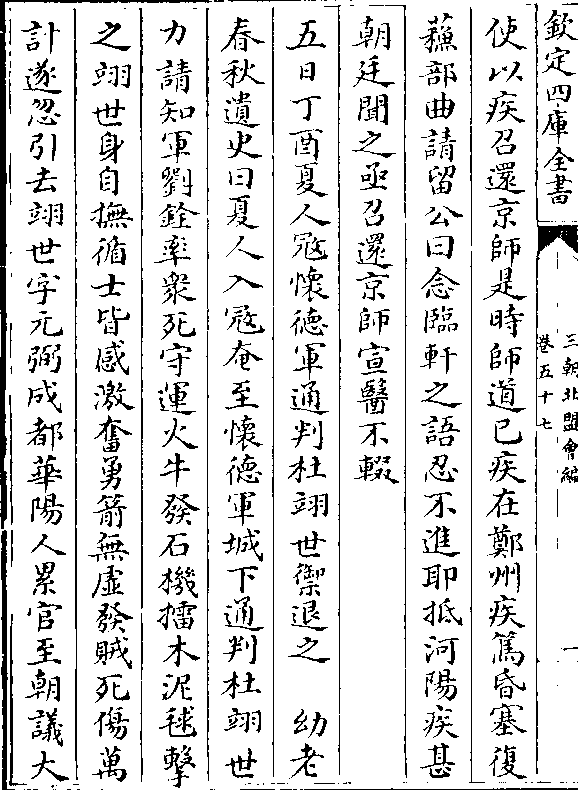 欽定四庫全書
三朝北盟會編
卷五十七
一
使以疾召還京師是時師道已疾在鄭州疾篤昏塞復
蘓部曲請留公曰念臨軒之語忍不進耶抵河陽疾甚
朝廷聞之亟召還京師宣醫不輟
五日丁酉夏人冦懐徳軍通判杜翊世禦退之　幼老
春秋遺史曰夏人入冦奄至懐徳軍城下通判杜翊世
力請知軍劉銓率衆死守運火牛發石機擂木泥毬擊
之翊世身自撫循士皆感激奮勇箭無虚發賊死傷萬
計遂忽引去翊世字元弼成都華陽人累官至朝議大